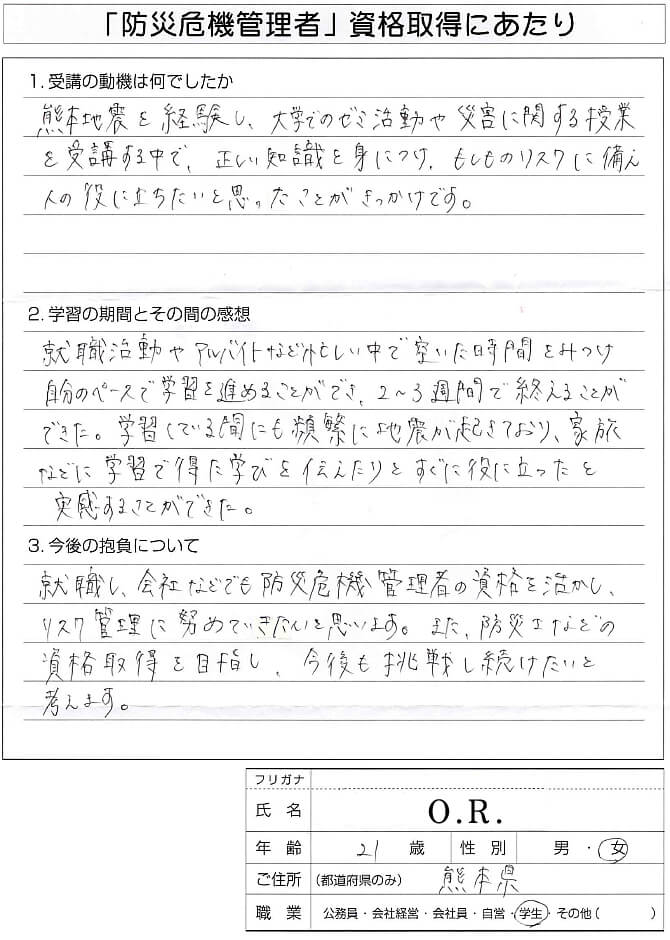 「防災危機管理者」資格取得にあたり
1. 受講の動機は何でしたか
熊本地震を経験し、大学でのゼミ活動や災害に関する授業
を受講する中で、正しい知識を身につけ、もしものリスクに備え
人の役に立ちたいと思ったことがきっかけです。
2. 学習の期間とその間の感想
就職活動やアルバイトなど忙しい中で空いた時間をみつけ
自分のペースで学習を進めることができ、2〜3週間で終えることが
できた。学習している間にも頻繁に地震が起きており、家族
などに学習で得た学びを伝えたりとすぐに役に立ったと
実感することができた。
3. 今後の抱負について
就職し、会社などでも防災危機管理者の資格を活かし、
リスク管理に努めていきたいと思います。また、防災士などの
資格取得を目指し、今後も挑戦し続けたいと
考えます。
フリガナ
氏名 O.R.
年齢 21 歳 性別 男・女
ご住所 (都道府県のみ) 熊本県
職業 公務員・会社経営・会社員・自営・学生・その他( )